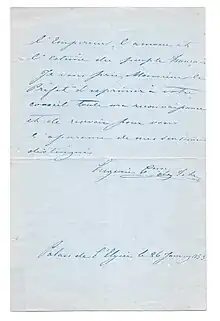 l'Empereur, l'amour et
l'estime du peuple français
Je vous prie, Monsieur le
Préfet, d'exprimer à votre
conseil toute ma reconnaissance
et de recevoir pour vous
l'assurance de mes sentiments
distingués
Eugénie C<sup>tesse</sup> de Téba
Palais de l'Elysée le 26 Janvier 1853